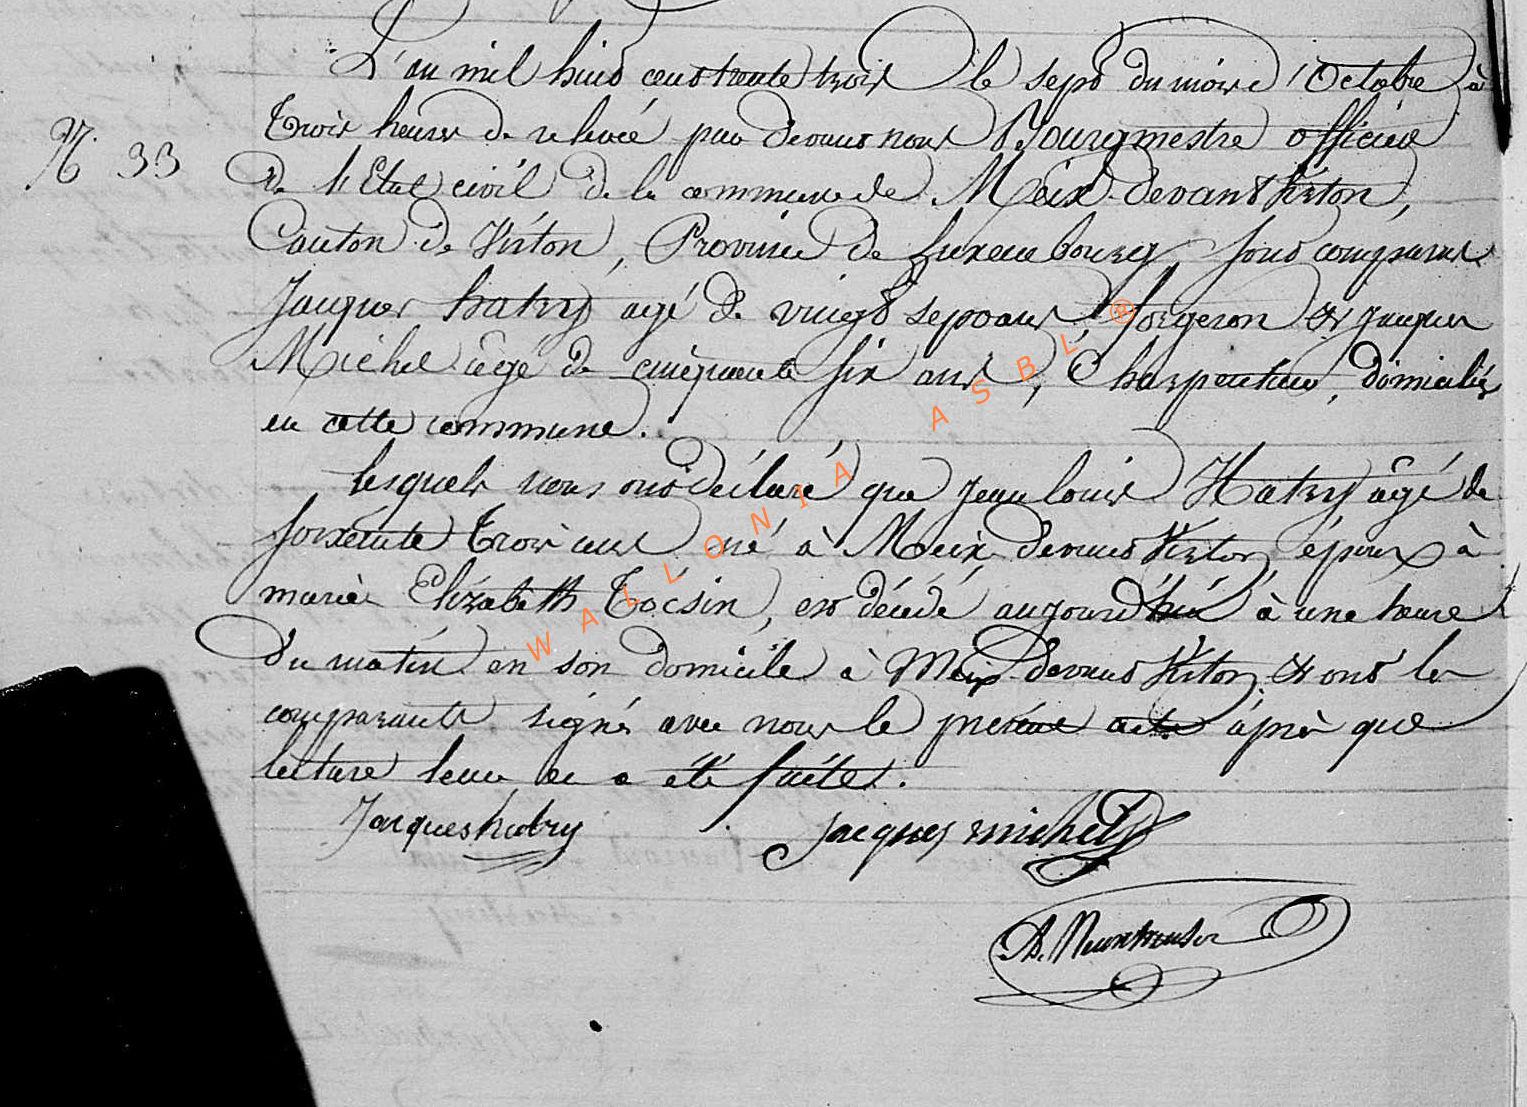 L'an mil huit cent trente trois le sept du mois d'Octobre à
N. 33
Trois heures de relevée par devant nous Bourgmestre officier
de l'Etat civil de la commune de Meix-devant Virton,
Canton de Virton, Province de Luxembourg, sont comparus
Jacques hatry agé de vingt sept ans, forgeron et Jacques
Michel âgé de cinquante six ans, Charpentier, domiciliés
en cette commune.
Lesquels nous ont déclaré que Jean louis Hatry âgé de
soixante Trois ans né à Meix devant Virton, époux à
marie Elizabeth Tocsin, est décédé aujourd'hui à une heure
du matin en son domicile à Meix-devant Virton, et ont les
comparants signés avec nous le présent acte après que
lecture leur en a été faite.
Jacques hatry jacques michel
WALLONIA ASBL ®